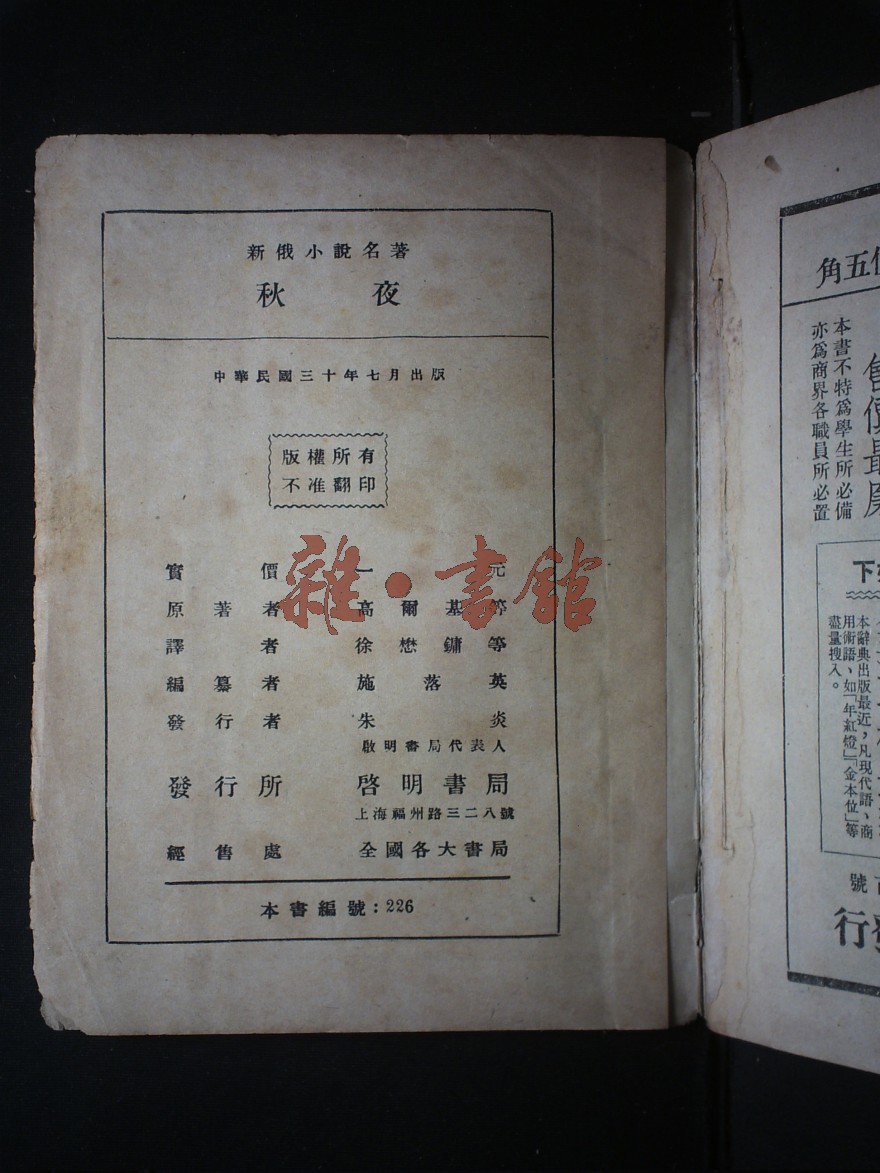 新俄小說名著
秋夜
中華民國三十年七月出版
版權所有
不准翻印
實價一元
原著者 高爾基等
譯者 徐懋鏞等
編纂者 施落英
發行者 朱炎
啟明書局代表人
發行所 啓明書局
上海福州路三二八號
經售處 全國各大書局
本書編號：226
雜·書館
五角
本書不特爲學生所必備
亦爲商界各職員所必置
售價最廉
下
本辭典出版最近，凡現代語、商
用術語、如「年紅燈」「金本位」等
盡量搜入。
號
行